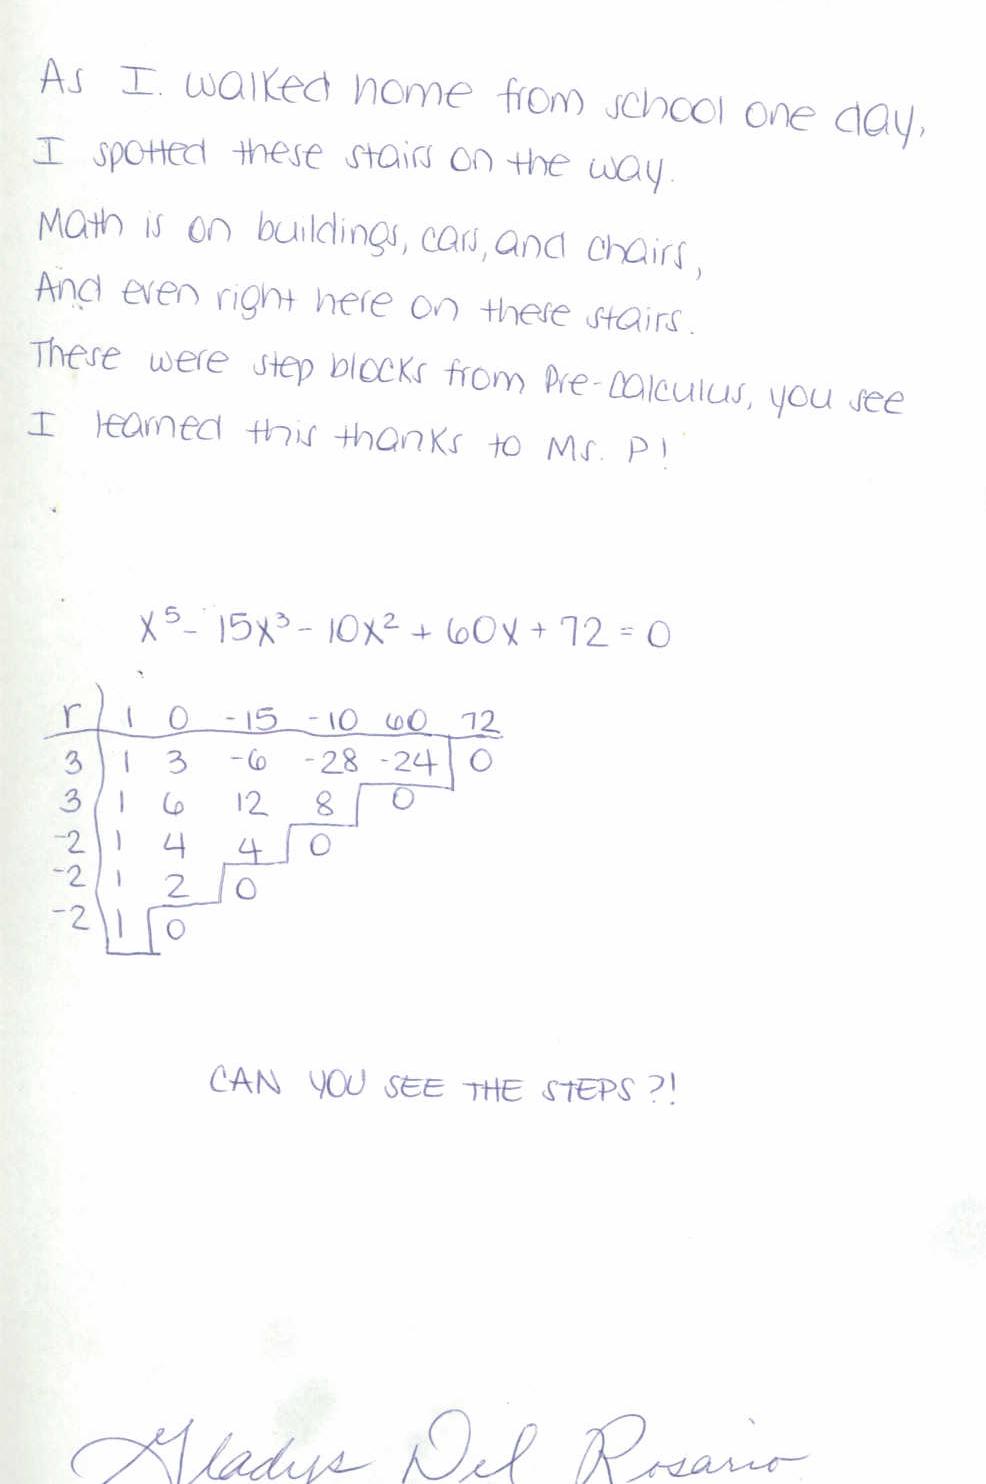 As I. walked home from school one day,
I spotted these stairs on the way.
Math is on buildings, cars, and chairs,
And even right here on these stairs.
These were step blocks from Pre-Calculus, you see
I learned this thanks to Ms. P!
x⁵ - 15x³ - 10x² + 60x + 72 = 0
r 1 0 -15 -10 60 72
3 1 3 -6 -28 -24 0
3 1 6 12 8 0
-2 1 4 4 0
-2 1 2 0
-2 1 0
CAN YOU SEE THE STEPS?!
Gladys Del Rosario